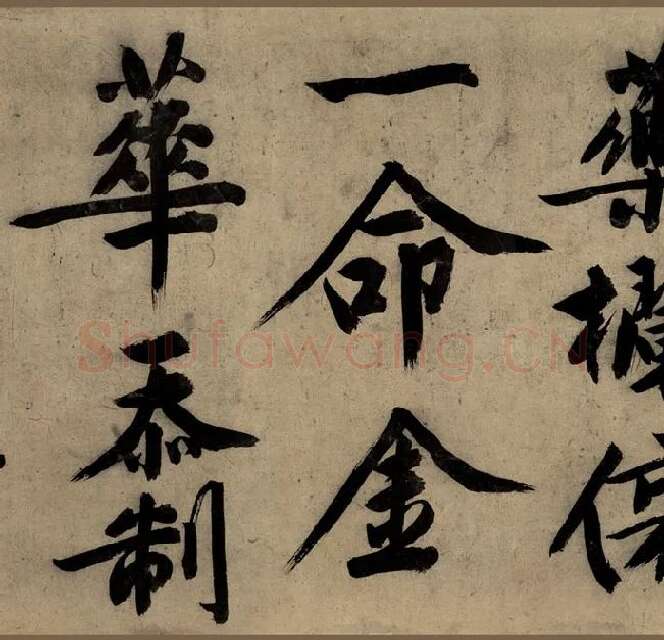 藥
一命金
華忝制
Shufawang.CN